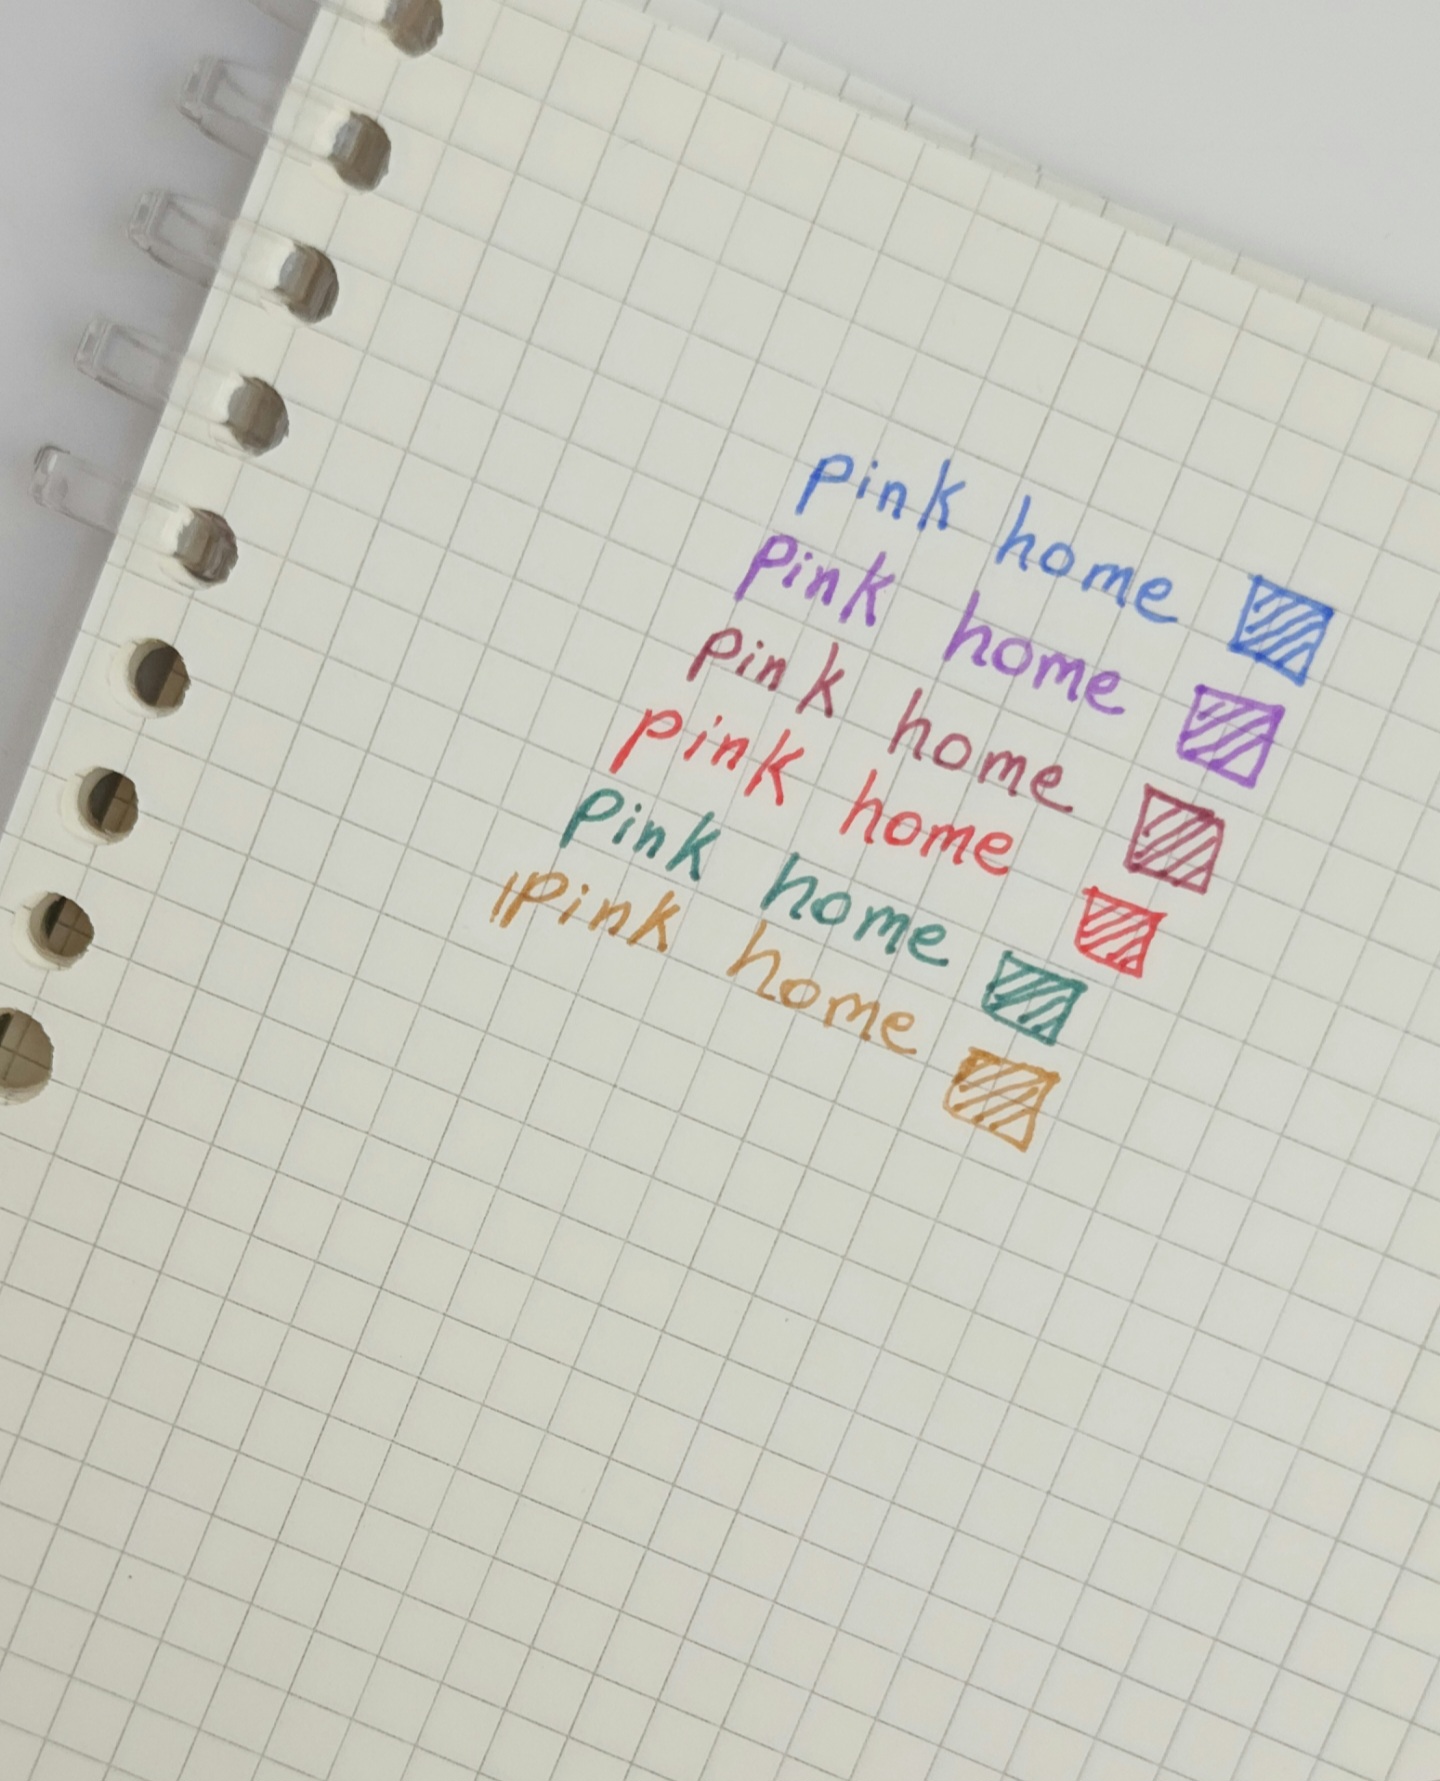 pink home
pink home
pink home
pink home
pink home
pink home